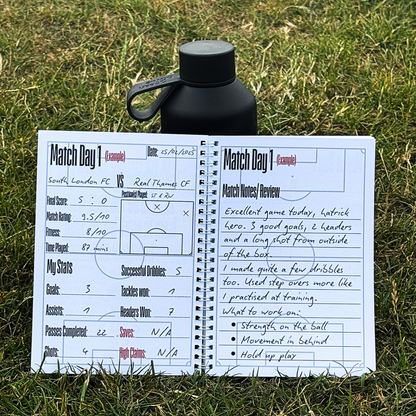 Match Day 1 (Example)
Date: 25/02/2025
South London FC VS Real Thames CF
Position(s) Played: ST & RW
Final Score: 5 : 0
Match Rating: 9.5/10
Fitness: 8/10
Time Played: 87 mins
My Stats
Successful Dribbles: 5
Goals: 3
Tackles won: 1
Assists: 1
Headers Won: 7
Passes Completed: 22
Saves: N/A
Shots: 4
High Claims: N/A
Match Day 1 (Example)
Match Notes/Review
Excellent game today, hatrick
hero. 3 good goals, 2 headers
and a long shot from outside
of the box.
I made quite a few dribbles
too. Used step overs more like
I practised at training.
What to work on:
• Strength on the ball
• Movement in behind
• Hold up play